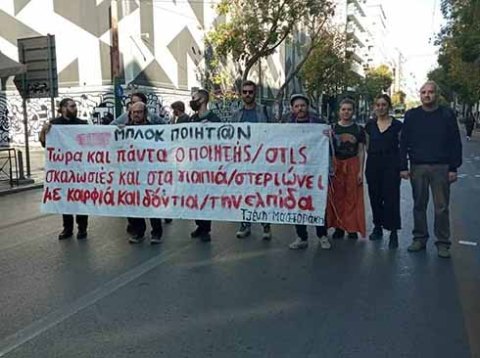 ΜΠΛΟΚ ΠΟΙΗΤ@Ν
Τώρα και πάντα ο ποιητής/στις
σκαλωσιές και στα γιαπιά/στεριώνει
με καρφιά και δόντια/την ελπίδα
Τζένη Μαστοράκη